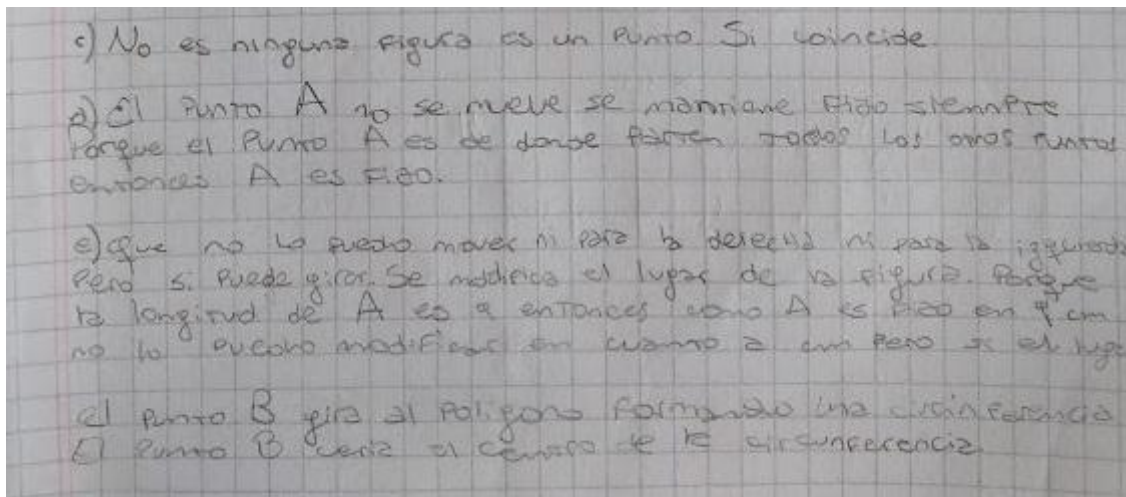 c) No es ninguna figura es un punto. Si coincide
El Punto A no se mueve se mantiene fijo siempre
Porque el Punto A es de donde parten todos los otros Puntos
entonces A es fijo.
e) Que no lo puedo mover ni para la derecha ni para la izquierda
Pero si puede girar. Se modifica el lugar de la figura. Porque
la longitud de A es entonces como A es fijo en 9 cm
no lo puedo modificar en cuanto a cm Pero si el
el Punto B gira al Poligono Formando una circunferencia
El Punto B seria el centro de la circunferencia